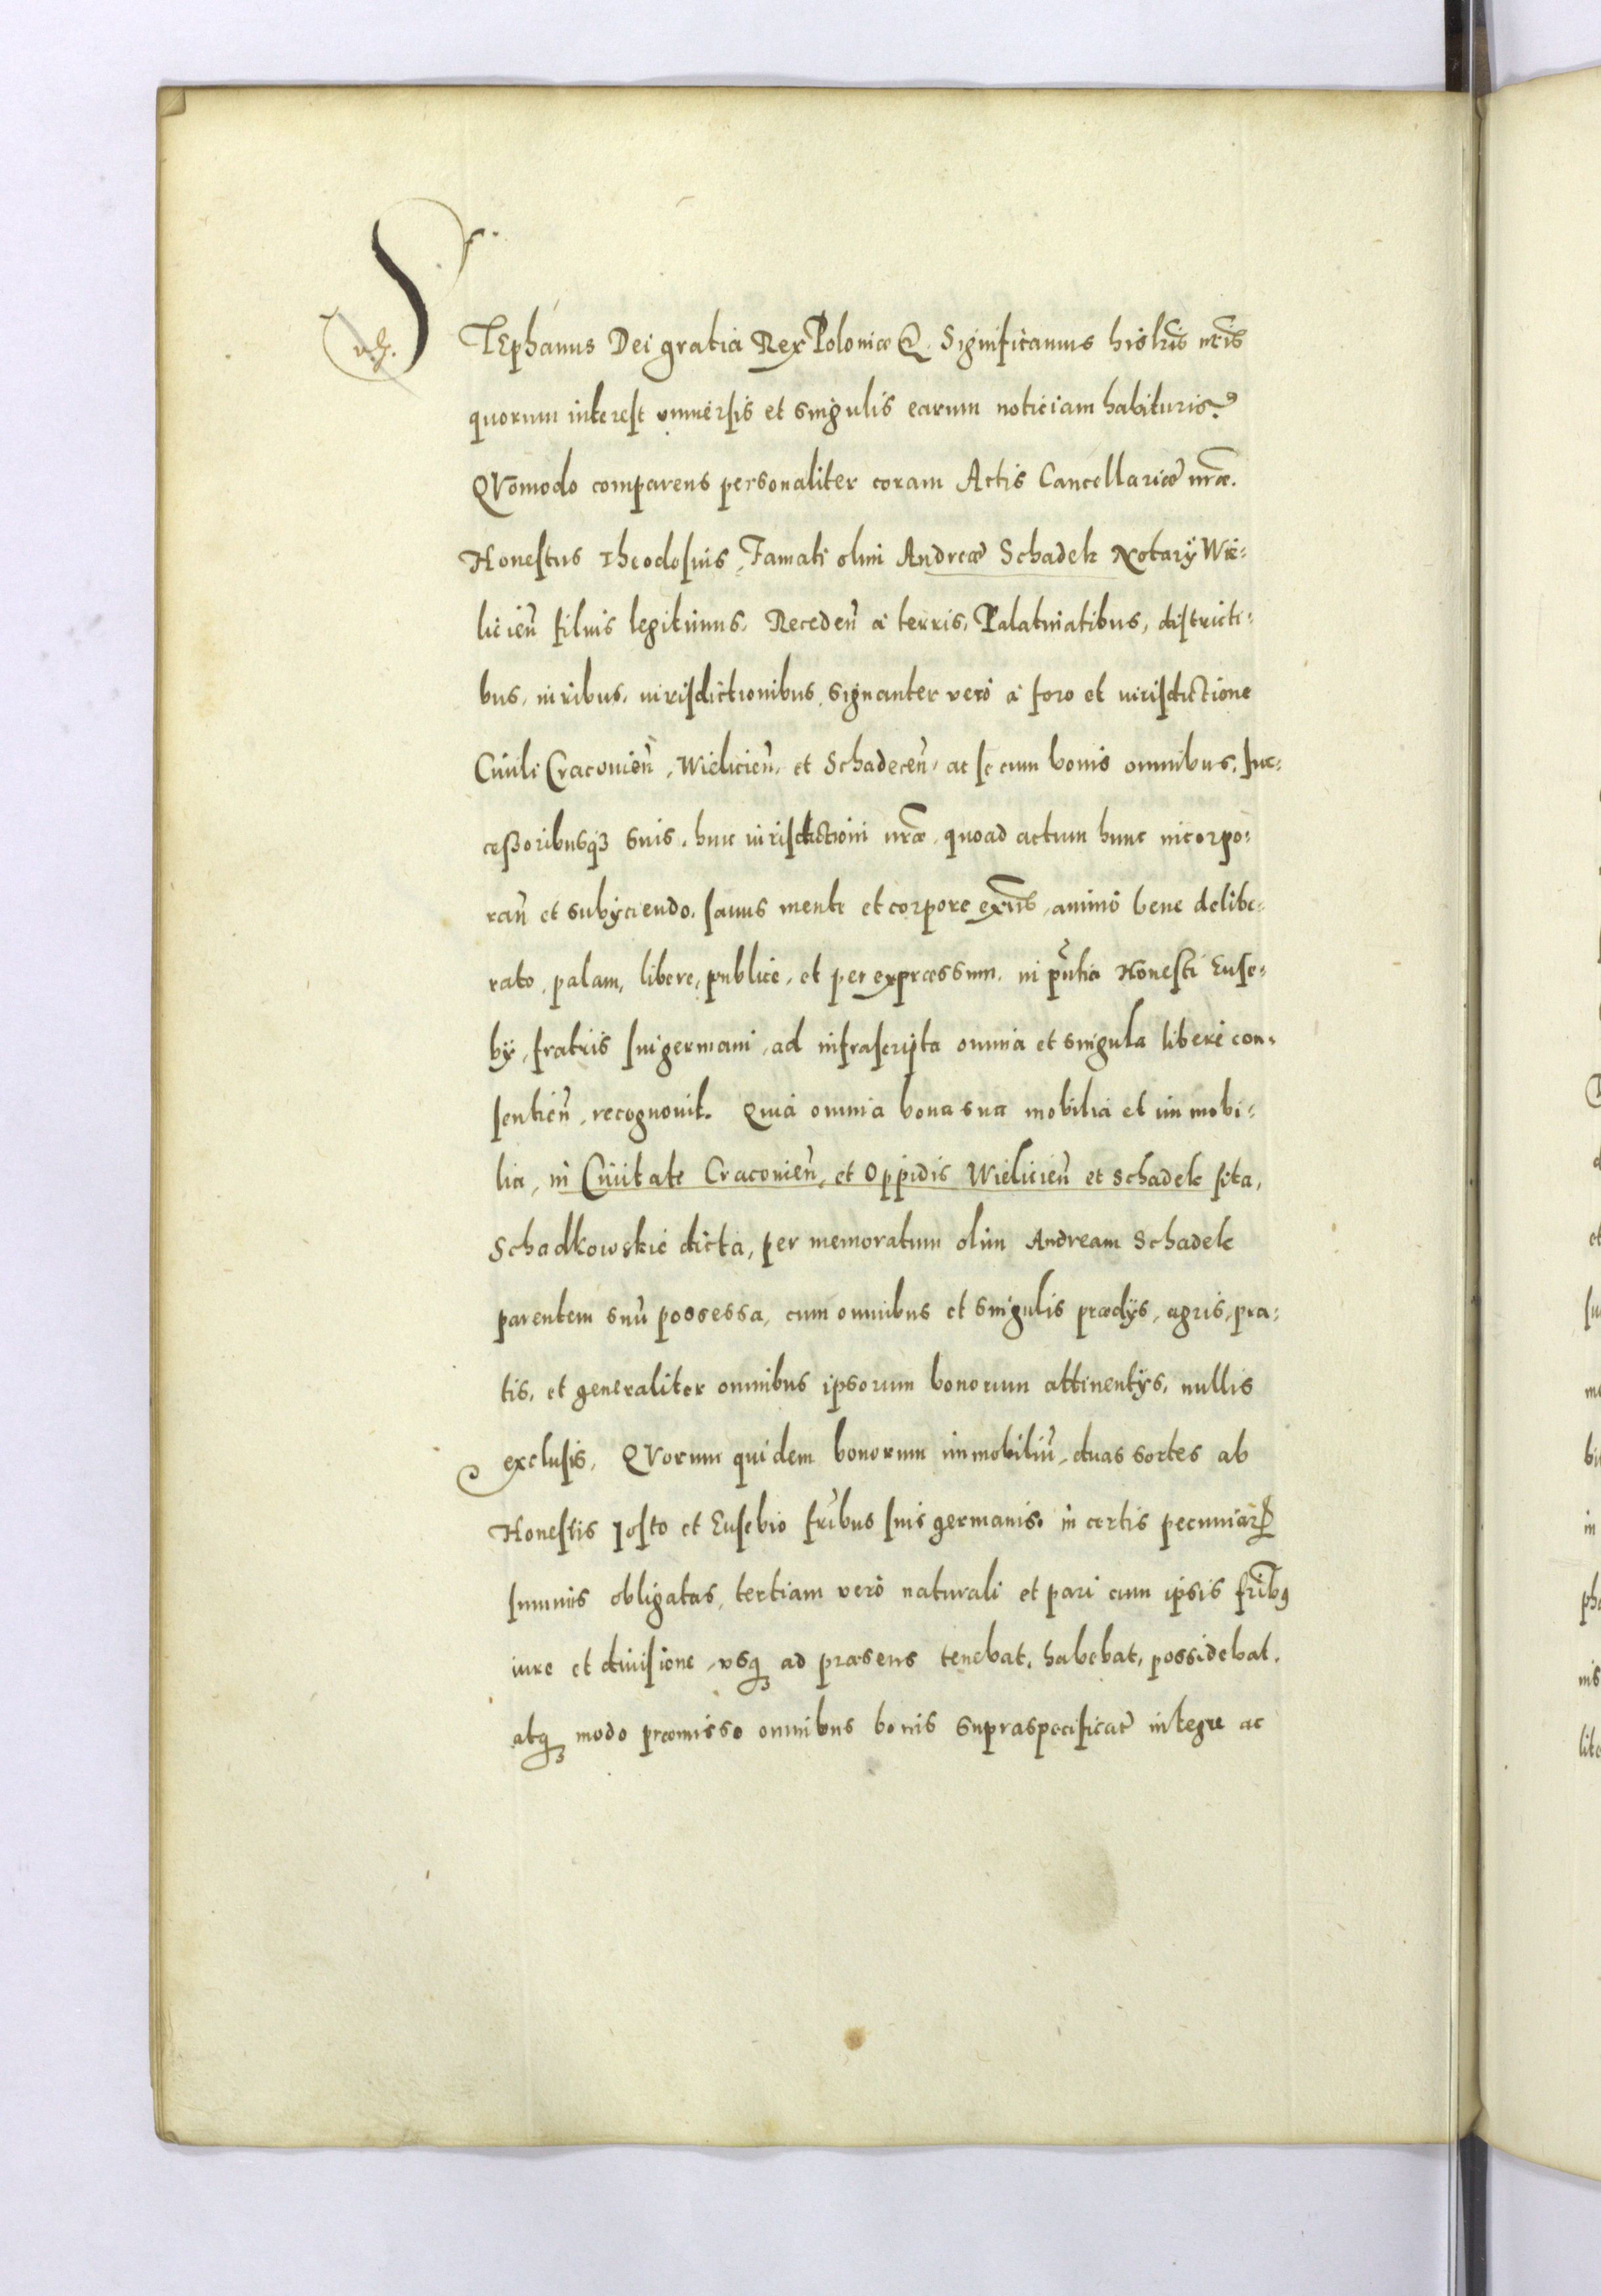 STEphanus Dei gratia Rex Poloniæ &. Significamus his lr̃is nr̃is
quorum interest vniuersis et singulis earum noticiam habituris.
QVomodo comparens personaliter coram Actis Cancellariæ nr̃æ.
Honestus Theodosius, Famati olim Andreæ Schadek Notarÿ Wie=
licien̄ filius legitimus. Receden̄ à terris, Palatinatibus, districti=
bus, iuribus, iurisdictionibus, signanter verò à foro et iurisdictione
Ciuili Cracouien̄, Wielicien̄, et Schadecen̄, ac se cum bonis omnibus, suc=
ceßoribusq₃ suis, huic iurisdictioni nr̃æ, quoad actum hunc incorpo=
ran̄ et subÿciendo, sanus mente et corpore exn̄s, animo bene delibe=
rato, palam, libere, publice, et per expræssum, in pn̄tia Honesti Euse=
bÿ, fratris sui germani, ad infrascripta omnia et singula liberè con=
sentien̄, recognouit. Quia omnia bona sua mobilia et immobi=
lia, in Ciuitate Cracouien̄, et Oppidis Wielicien̄ et Schadek sita,
Schadkowskie dicta, per memoratum olim Andream Schadek
parentem suū possessa, cum omnibus et singulis prædÿs, agris, pra=
tis, et generaliter omnibus ipsorum bonorum attinentÿs, nullis
exclusis, QVorum quidem bonorum immobiliū, duas sortes ab
Honestis Josto et Eusebio fr̃ibus suis germanis, in certis pecuniarꝝ
summis obligatas, tertiam verò naturali et pari cum ipsis fr̃ibꝫ
iure et diuisione, vsq₃ ad præsens tenebat, habebat, possidebat.
atq₃ modo præmisso omnibus bonis supraspecificat̃ integre ac